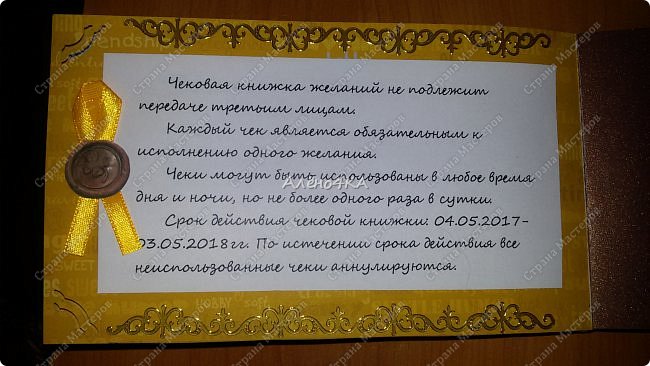 Чековая книжка желаний не подлежит
передаче третьим лицам.
Каждый чек является обязательным к
исполнению одного желания.
Чеки могут быть использованы в любое время
дня и ночи, но не более одного раза в сутки.
Срок действия чековой книжки: 04.05.2017-
03.05.2018гг. По истечении срока действия все
неиспользованные чеки аннулируются.
Алено4КА
Страна Мастеров